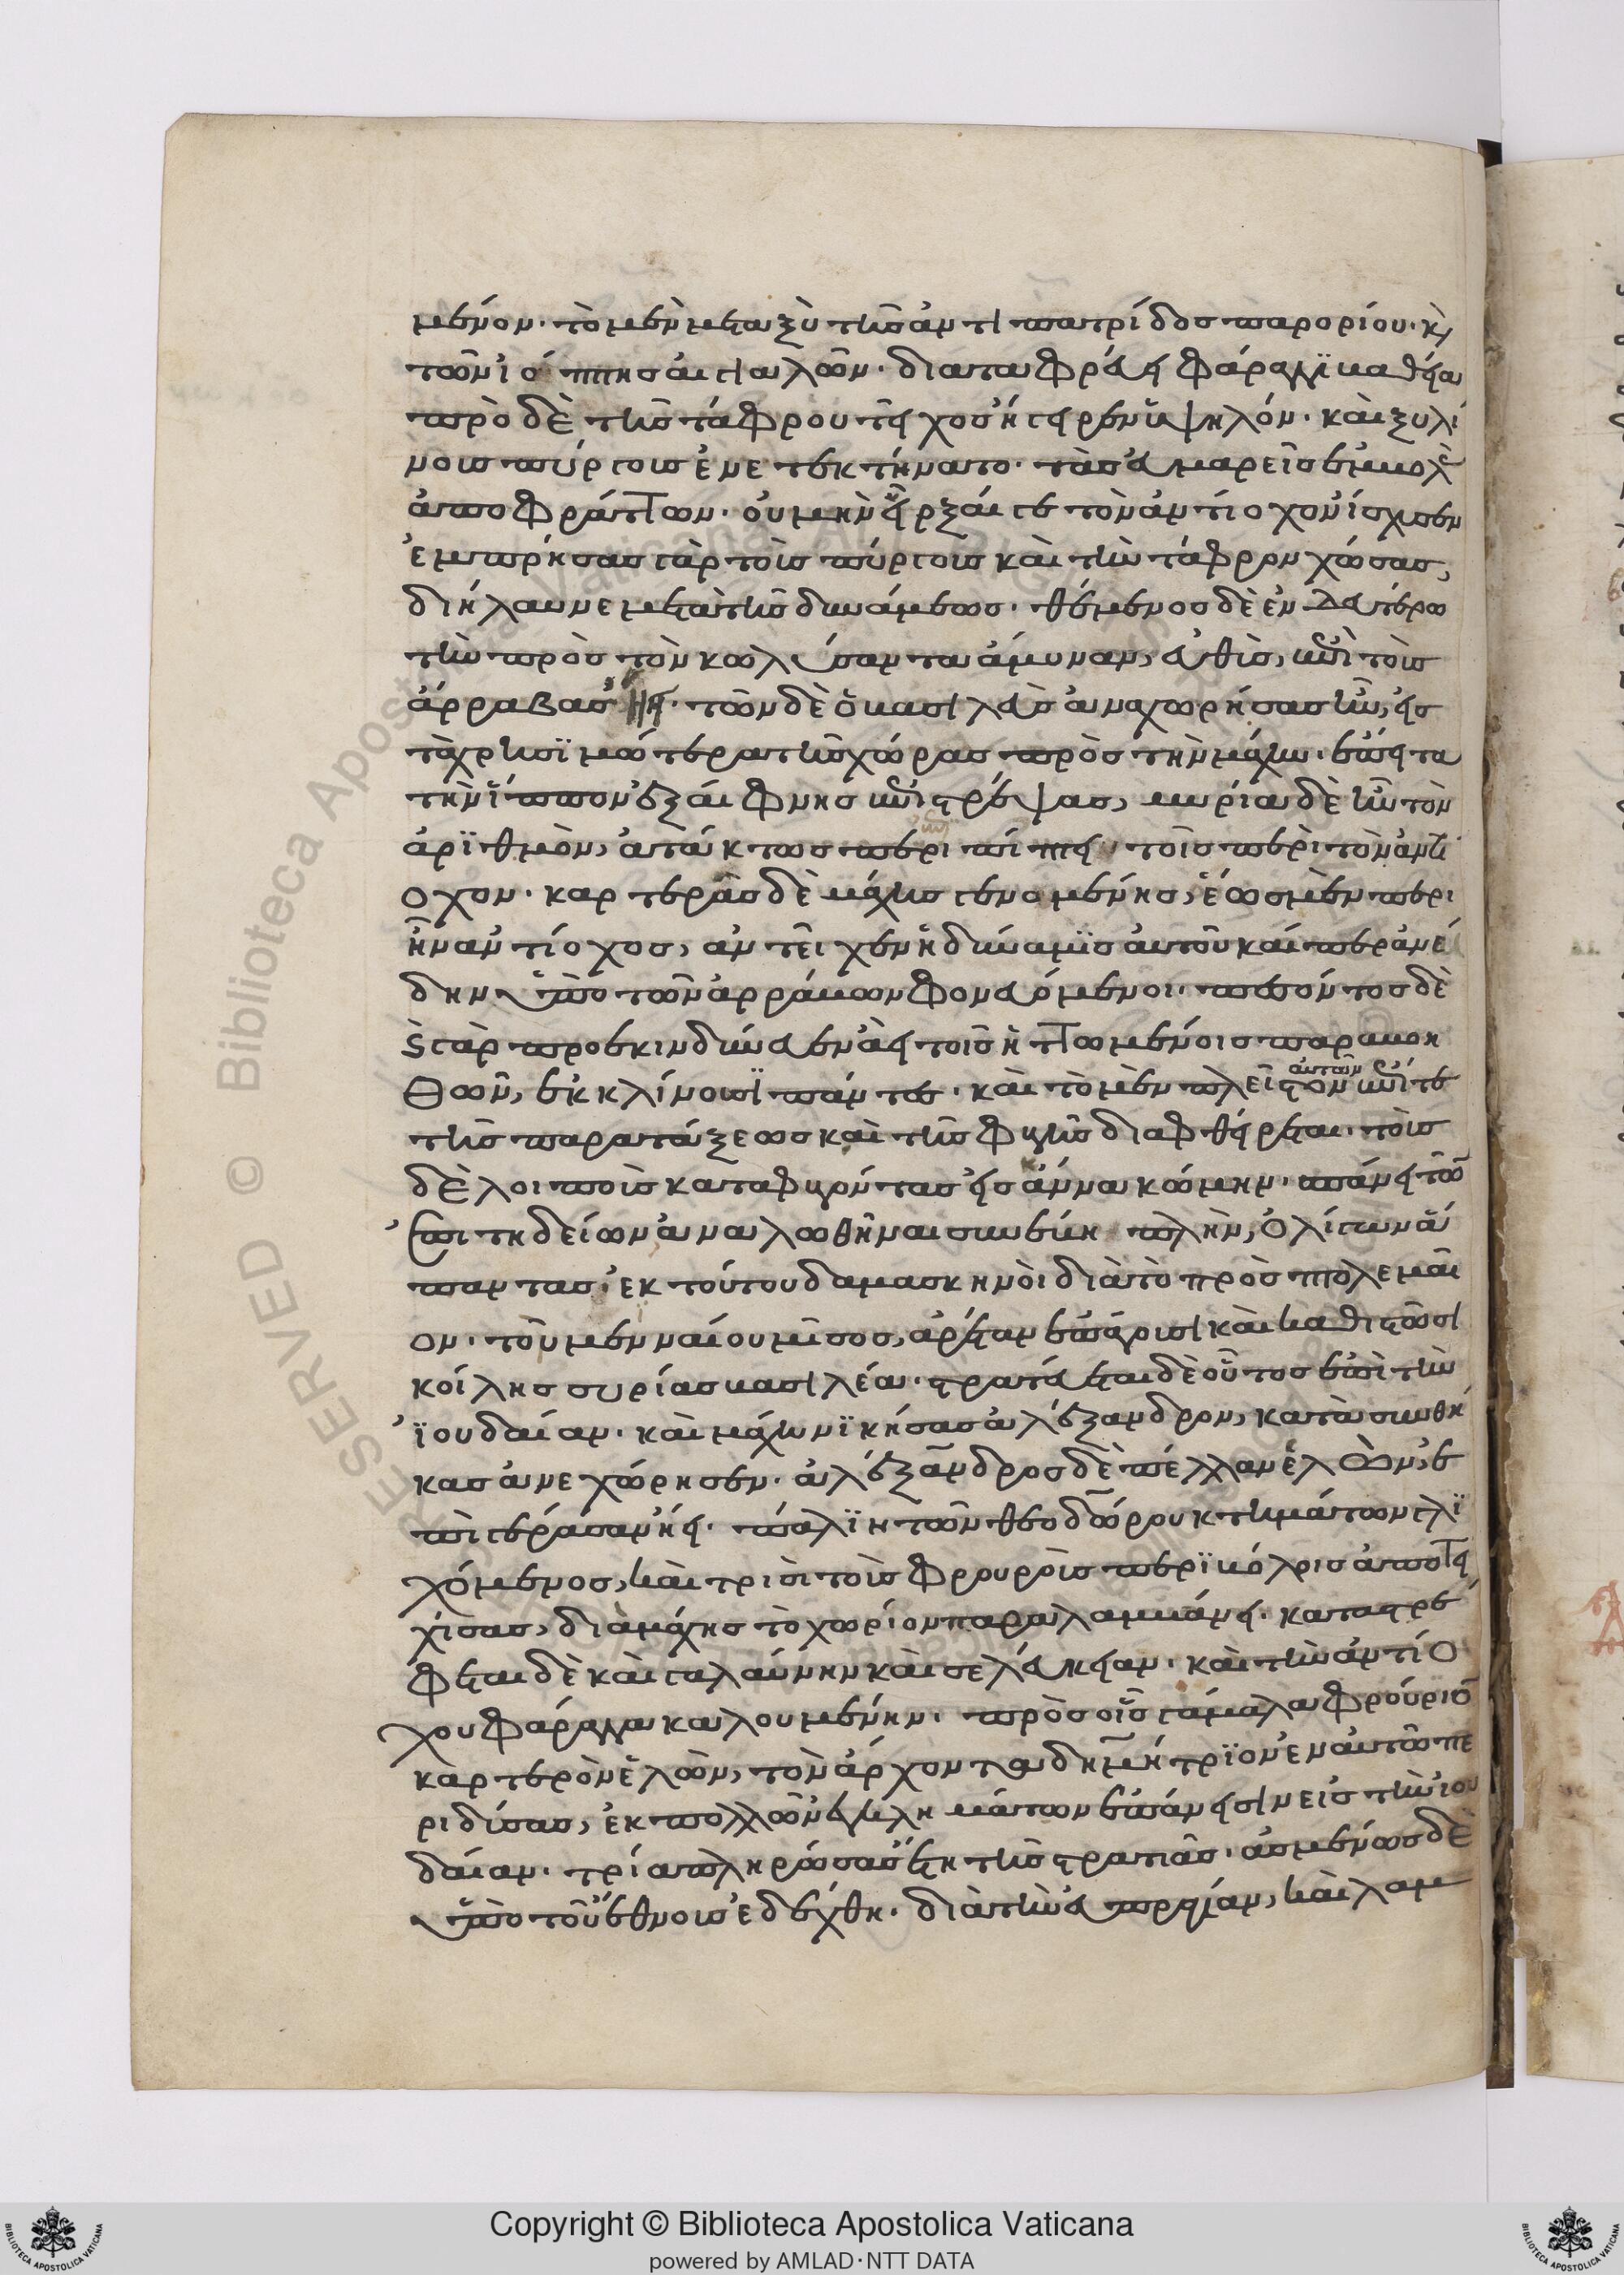 μένον· τὸ μὲν μεταξὺ τῆς ἀντιπατρίδος παρορίου· κ(αὶ)
τῶν ἰόππης αἰγιαλῶν· διαταφρεύει φάραγγι βαθείᾳ
πρὸ δὲ τῆς τάφρου τεῖχος ἤγειρεν ὑψηλόν· καὶ ξυλί
νοις πύργοις ἐνετεκτήνατο· τὰς εὐμαρεῖς ἐμβολὰς
ἀποφράττων· οὐ μὴν εἷρξαί γε τὸν ἀντίοχον ἴσχυσεν
ἐμπρήσας γὰρ τοῖς πύργοις καὶ τὴν τάφρον χώσας,
διήλαυνε μετὰ τῆς δυνάμεως· θέμενος δὲ ἐν δευτέρῳ
τὴν πρὸς τὸν κωλύσαντα ἄμυναν, εὐθὺς, ἐπὶ τοὺς
ἄρραβας ᾔει· τῶν δὲ ὁ βασιλεὺς ἀναχωρήσας ἦν, εἰς
τὰ χρησιμώτερα τῆς χώρας πρὸς τὴν μάχην· ἔπειτα
τὴν ἵππον ἐξαίφνης ἐπιστρέψας, μυρία δὲ ἦν τὸν
ἀριθμὸν, ἀτάκτως περιπίπτει τοῖς περὶ τὸν ἀντί
οχον· καρτερᾶς δὲ μάχης γενομένης, ἕως μὲν περι
ῆν ἀντίοχος, ἀντεῖχεν ἡ δύναμις αὐτοῦ καίπερ ἀνέ
δην ὑπὸ τῶν ἀρράβων φονευόμενοι· πεσόντος δὲ
καὶ γὰρ προεκινδύνευεν ἀεὶ τοῖς ἡττωμένοις παραβοη
θῶν, ἐκκλίνουσι πάντες· καὶ τὸ μὲν πλεῖστον αὐτῶν ἐπί τε
τῆς παρατάξεως καὶ τῆς φυγῆς διαφθείρεται· τοὺς
δὲ λοιποὺς καταφυγόντας εἰς ἄννα κώμην· σπάνει τῶν
ἐπιτηδείων ἀναλωθῆναι συνέβη πλὴν, ὀλίγων ἅ
παντας· ἐκ τούτου δαμασκηνοὶ διὰ τὸ πρὸς πτολεμαῖ
ον· τοῦ μενναίου μῖσος, ἀρέταν ἐπάγουσι καὶ καθιστῶσι
κοίλης συρίας βασιλέα· στρατεύεται δὲ οὗτος ἐπὶ τὴν
ἰουδαίαν· καὶ μάχῃ νικήσας ἀλέξανδρον, κατὰ συνθή
κας ἀνεχώρησεν· ἀλέξανδρος δὲ πέλλαν ἑλὼν, ἐ
πὶ γέρασαν ᾔει· πάλιν τῶν θεοδώρου κτημάτων γλι
χόμενος, καὶ τρισὶ τοὺς φρουροὺς περιβόλοις ἀποτει
χίσας, διὰ μάχης τὸ χωρίον παραλαμβάνει· καταστρέ
φεται δὲ καὶ γαλαύνην καὶ σελεύκειαν· καὶ τὴν ἀντιό
χου φάραγγα καλουμένην· πρὸς οἷς γάμαλα φρούριον
καρτερὸν ἑλὼν, τὸν ἄρχοντα δημήτριον ἐν αὐτῷ πε
ριδύσας, ἐκ πολλῶν ἐγκλημάτων ἐπάνεισιν εἰς τὴν ἰου
δαίαν· τρία πληρώσας ἔτη τῆς στρατιᾶς· ἀσμένως δὲ
ὑπὸ τοῦ ἔθνους ἐδέχθη· διὰ τὴν εὐπραγίαν, καὶ λαμ